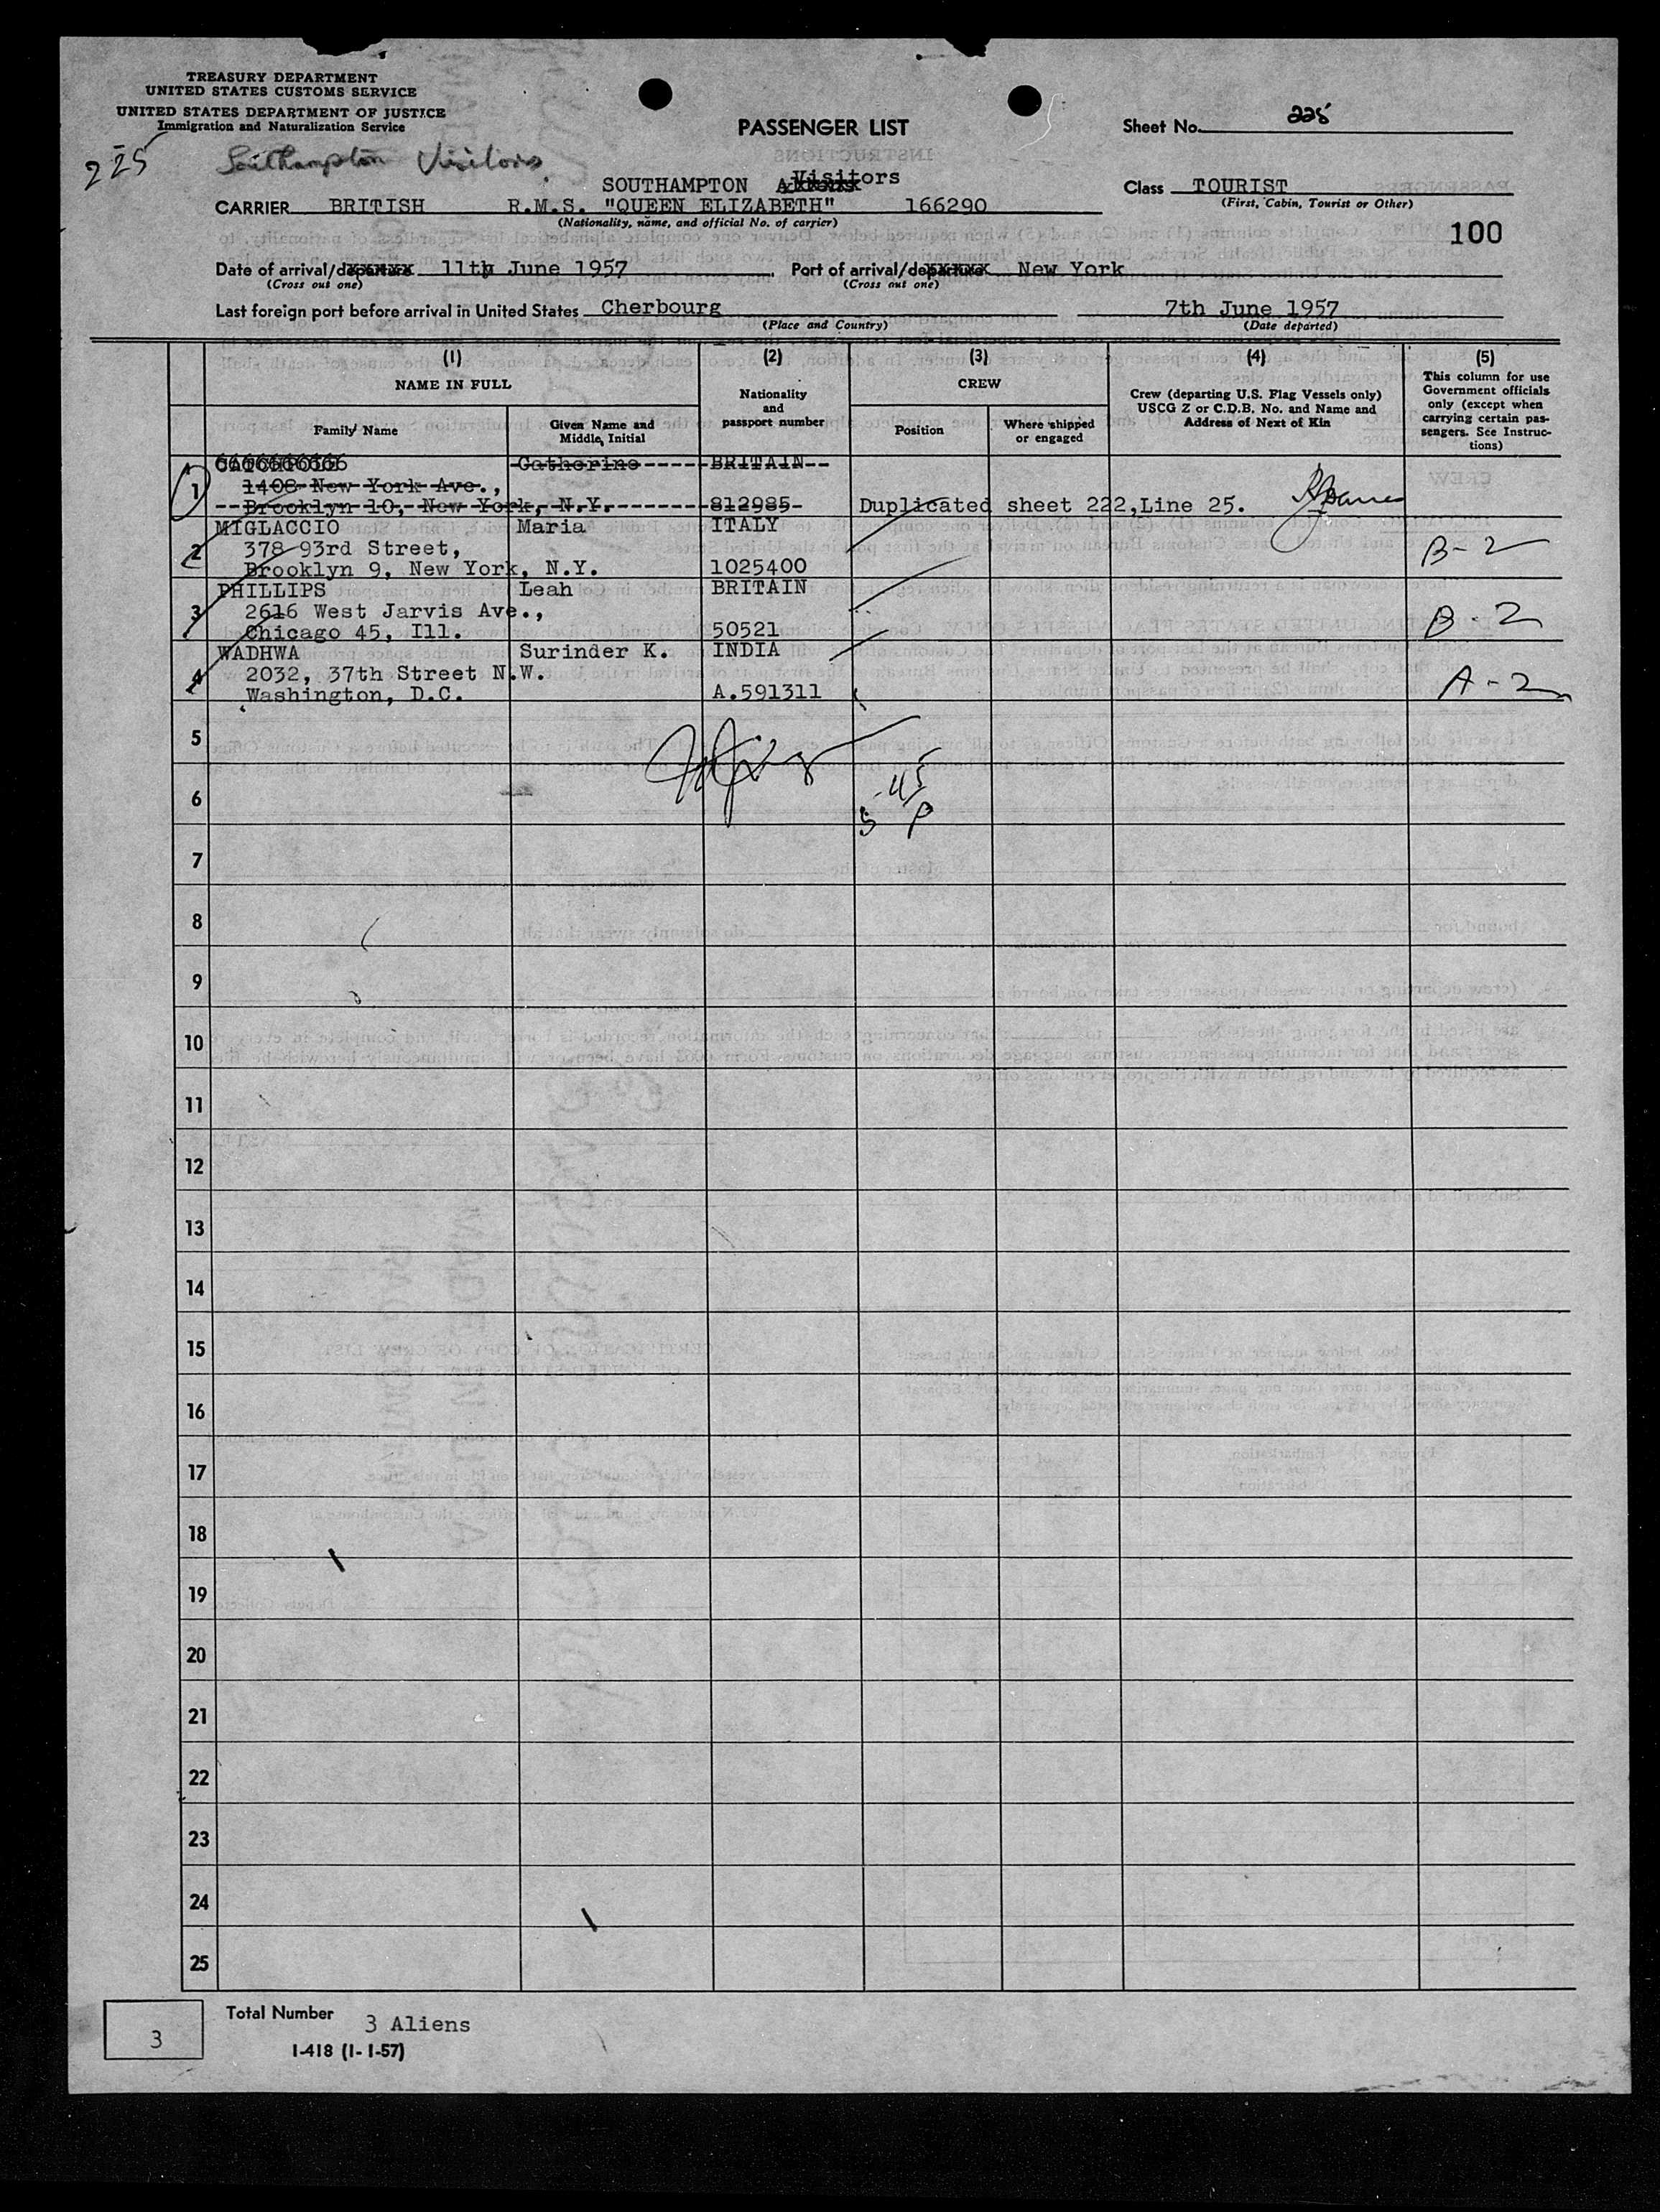 TREASURY DEPARTMENT
UNITED STATES CUSTOMS SERVICE
UNITED STATES DEPARTMENT OF JUSTICE
Immigration and Naturalization Service
PASSENGER LIST
Sheet No. 225
225
Southampton Visitors.
SOUTHAMPTON Visitors
Class TOURIST
(First, Cabin, Tourist or Other)
CARRIER BRITISH R.M.S. "QUEEN ELIZABETH" 166290
(Nationality, name, and official No. of carrier)
100
Date of arrival/departure 11th June 1957. Port of arrival/departure New York
(Cross out one) (Cross out one)
Last foreign port before arrival in United States Cherbourg 7th June 1957
(Place and Country) (Date departed)
(1) (2) (3) (4) (5)
NAME IN FULL
Family Name
Given Name and Middle Initial
Nationality and passport number
CREW
Position
Where shipped or engaged
Crew (departing U.S. Flag Vessels only)
USCG Z or C.D.B. No. and Name and
Address of Next of Kin
This column for use
Government officials
only (except when
carrying certain pas-
sengers. See Instruc-
tions)
1 Catherine BRITAIN
1408 New York Ave.,
Brooklyn 10, New York, N.Y. 812985 Duplicated sheet 222,Line 25.
2 MIGLACCIO Maria ITALY
378 93rd Street, B-2
Brooklyn 9, New York, N.Y. 1025400
3 PHILLIPS Leah BRITAIN
2616 West Jarvis Ave., B-2
Chicago 45, Ill. 50521
4 WADHWA Surinder K. INDIA
2032, 37th Street N.W.
Washington, D.C. A.591311 A-2
5
6
7
8
9
10
11
12
13
14
15
16
17
18
19
20
21
22
23
24
25
3
Total Number 3 Aliens
I-418 (1-1-57)